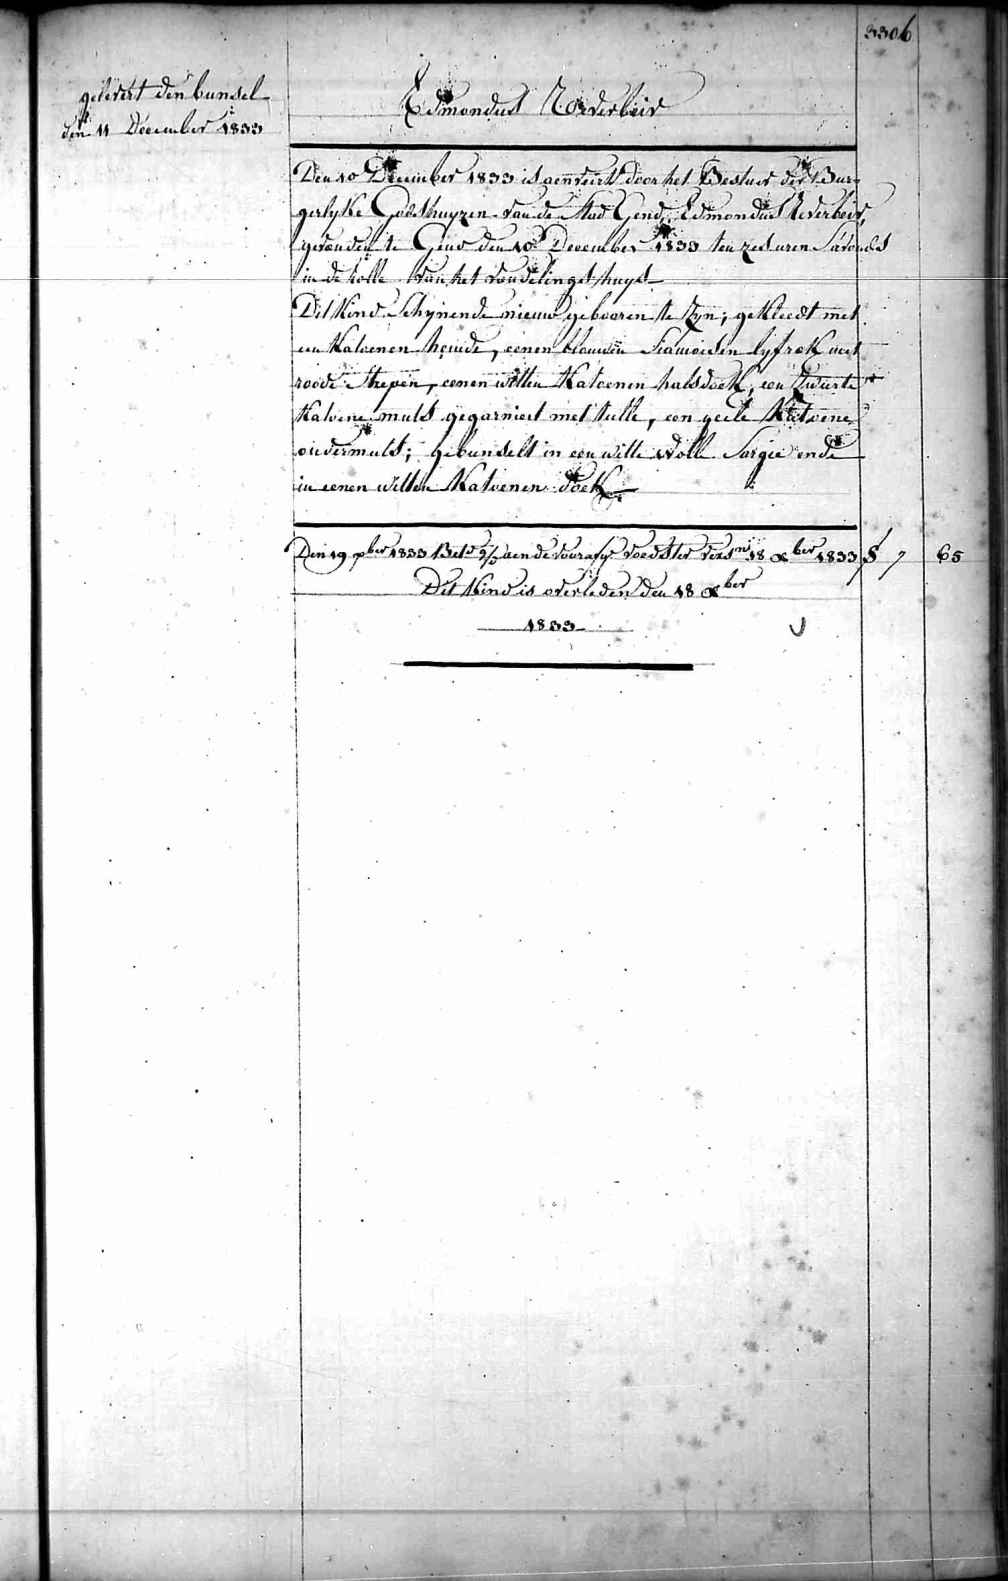 3306
gelevert den bunsel
den 11 December 1833
Edmondus Neverbeir
Den 10 December 1833 is aenveirt door het Bestuer der Bur-
gerlyke Godshuyzen van de Stad Gend, Edmondus Neverbeir,
gevonden te Gend den 10e December 1833 ten zes uren s'avonds
in de rolle van het vondelingshuys
Dit Kind schynende nieuw gebooren te zyn; gekleedt met
een Katoenen hemde, eenen blauwen Siamoisen lyfrok met
roode strepen, eenen witten Katoenen halsdoek, een zwarte
Katoene muts gegarniert met tulle, een geele Katoene
ondermuts; gebunselt in een witte wolle sargie ende
in eenen witten Katoenen doek
Den 19 xber 1833 Bet. aen de voedster 18 xber 1833 f 7 65
Dit Kind is overleden den 18 xber
1833